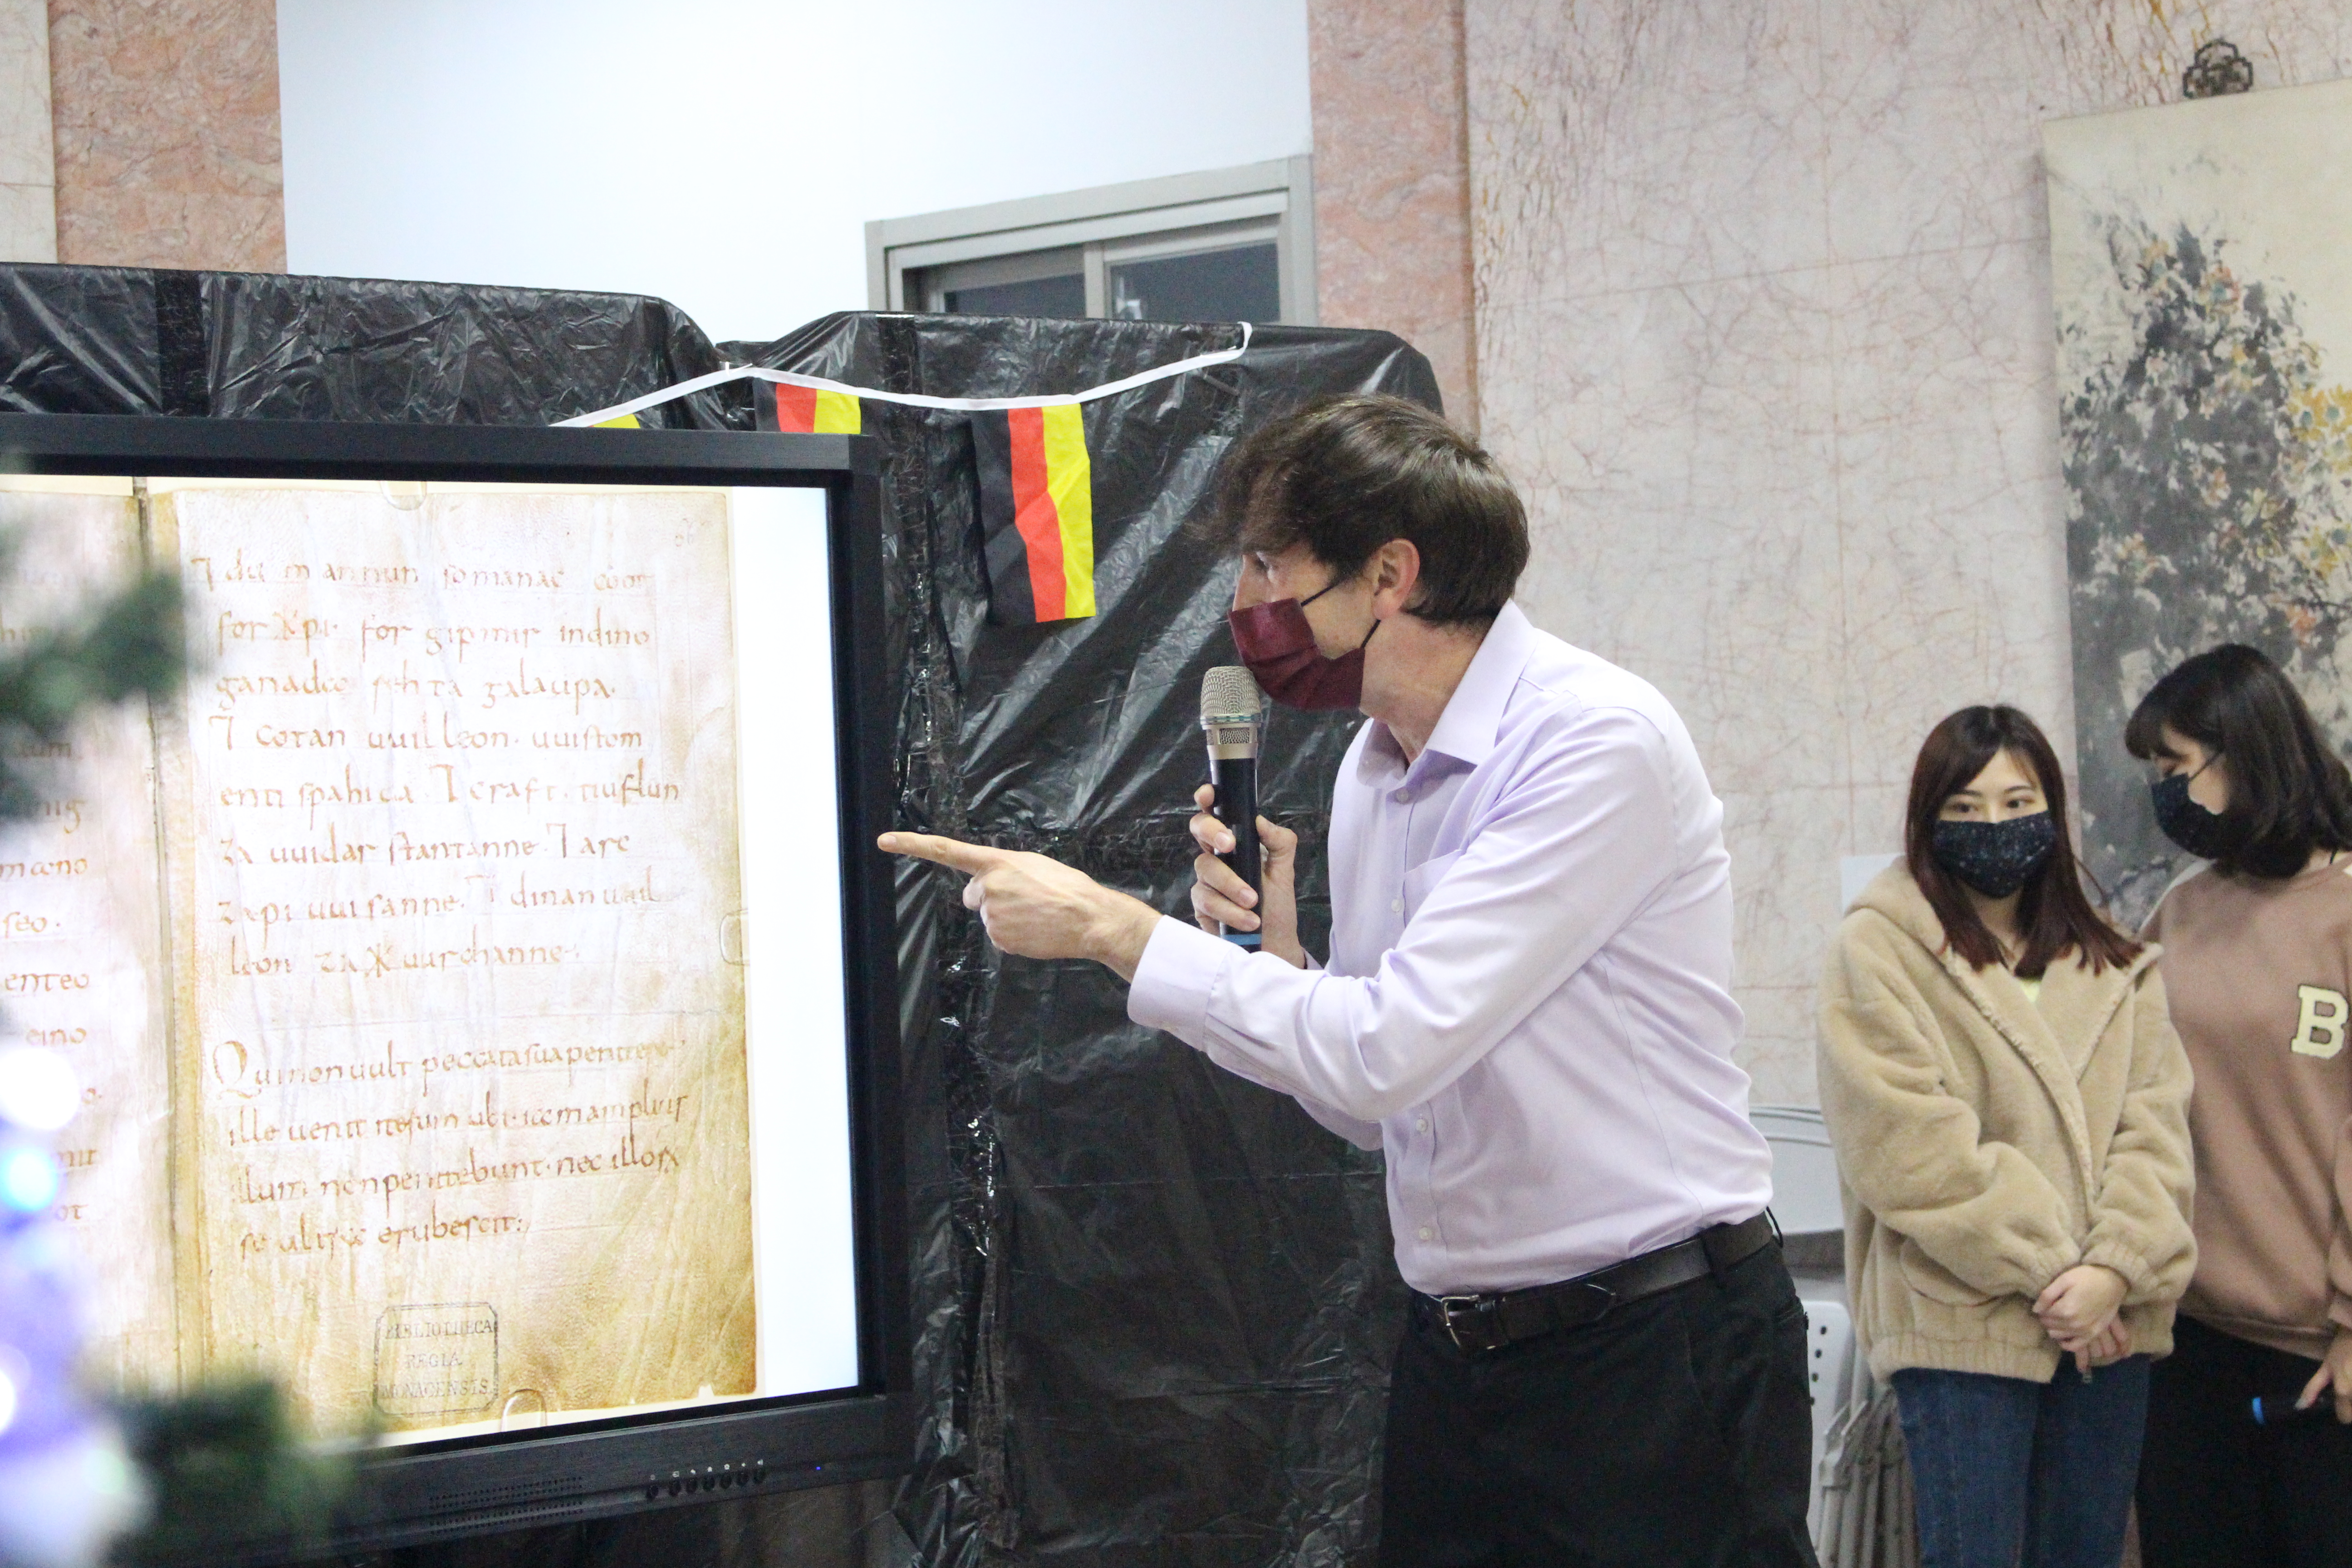 nig
mæno
seo·
enteo
eino
ot
⁊ du mannun so manac coot
for ✱pi· for gipmir indino
ganada rehta galaupa·
⁊ cotan uuilleon· uuistom
enti spahida· ⁊ craft· tiuflun
za uuidar stantanne· ⁊ arc
za pi uuisanne· ⁊ dinan uuil
leon za ✱uurchanne·
Qui non uult peccata sua penitere·
ille uenit iterum ubi· iam amplius
illum non penitebunt· nec illorum
se ultra erubescit:
BIBLIOTHECA
REGIA
MONACENSIS
B